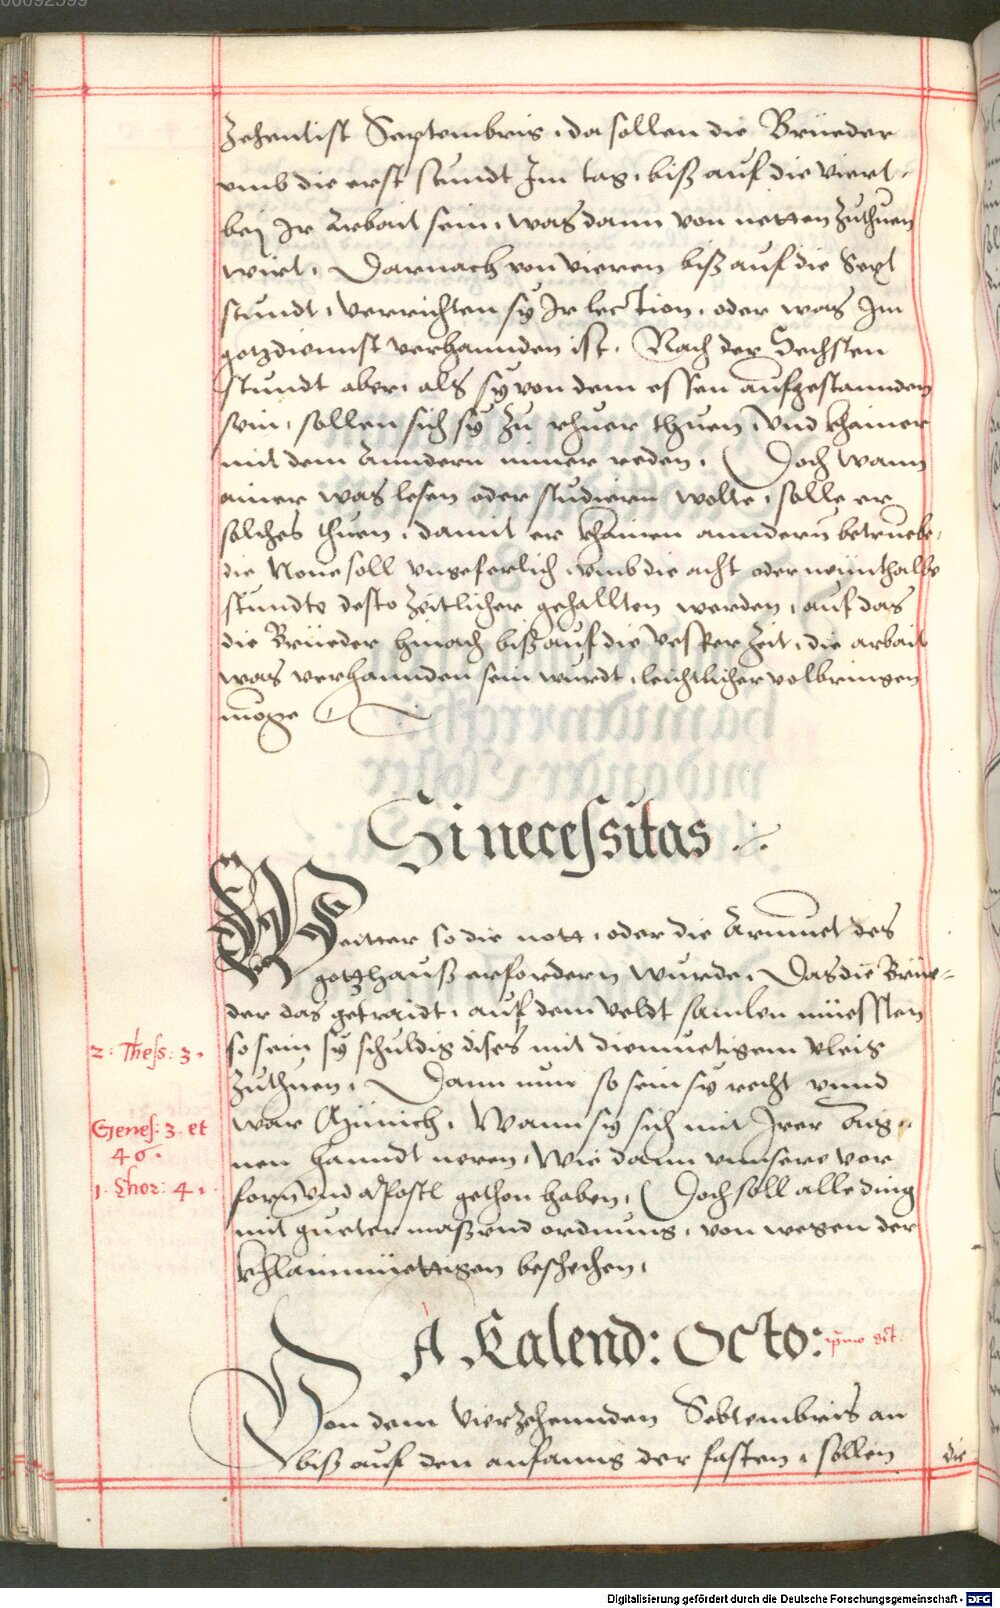 Zehentist Septembris, da sollen die Brüeder
umb die erst stundt Im tag, biß auf die Viert
bej Ir Arbait sein, was dann von netten Zuthuen
wirt, Darnach von vieren biß auf die Sext
stundt, Verrichten sy Ir lection, oder was Im
gotzdiennst verhannden ist, Nach der Sechsten
stundt aber, als sy von dem essen aufgestannden
sein, sollen sich sy Zu rhuer thuen, Und khainer
mit dem Anndern nimer reden, Doch wann
ainer was lesen oder studiern wolle, solle er
solches thuen, damit er khainen anndern betruebe,
die None soll ungeferlich, umb die acht oder neünthalbe
stundts desto Zeitlicher gehallten werden, auf das
die Brüeder hinach biß auf die Vesper Zeit, die arbait
was verhannden sein wurdt, leichtlicher volbringen
möge
Si necessitas
Weitter so die nott, oder die Armuet des
gotzhauß erfordern wurde, Das die Brüe-
der das getraidt, auf dem Veldt samlen müessten
so sein sy schuldig dises mit diemuetigem Vleis
Zuthuen, Dann nun so sein sy recht unnd
war Münich, Wann sy sich mit Irer Aig-
nen hanndt neren, Wie dann unnsere vor
forn Und Apostl gethon haben, Doch soll alle ding
mit gueter maß und ordnung, von wegen der
khlainmüettigen beschehen,
2: Thess: 3.
Genes: 3. et
46.
1. Chor: 4.
A Kalend: Octo:
Von dem Vierzehennden Sebtembris an
biß auf den anfanng der fasten, sollen
die
Digitalisierung gefördert durch die Deutsche Forschungsgemeinschaft - DFG